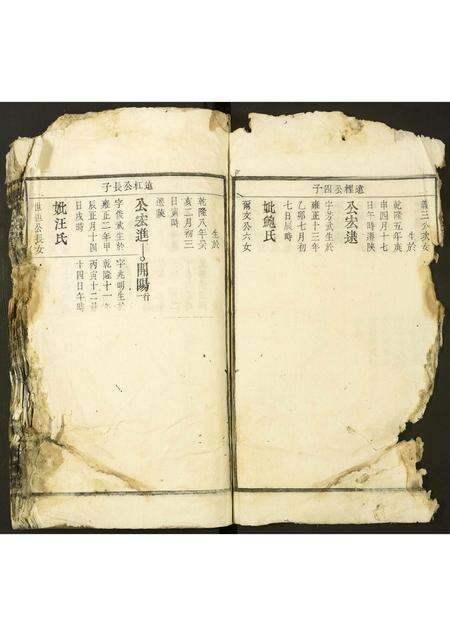 子四公樫遠
生於
乾隆五年庚
申四月十七
日午時遷陝
公宏逮
字芳武生於
雍正十三年
乙卯七月初
七日辰時
妣鮑氏
爾文公六女
子長公杠遠
生於
乾隆八年癸
亥二月初三
日寅時
遷陝
公宏進
開陽
字俊武生於
雍正二年甲
辰正月十四
日戌時
字兆明生於
乾隆十一年
丙寅十二月
十四日午時
妣汪氏
公長女